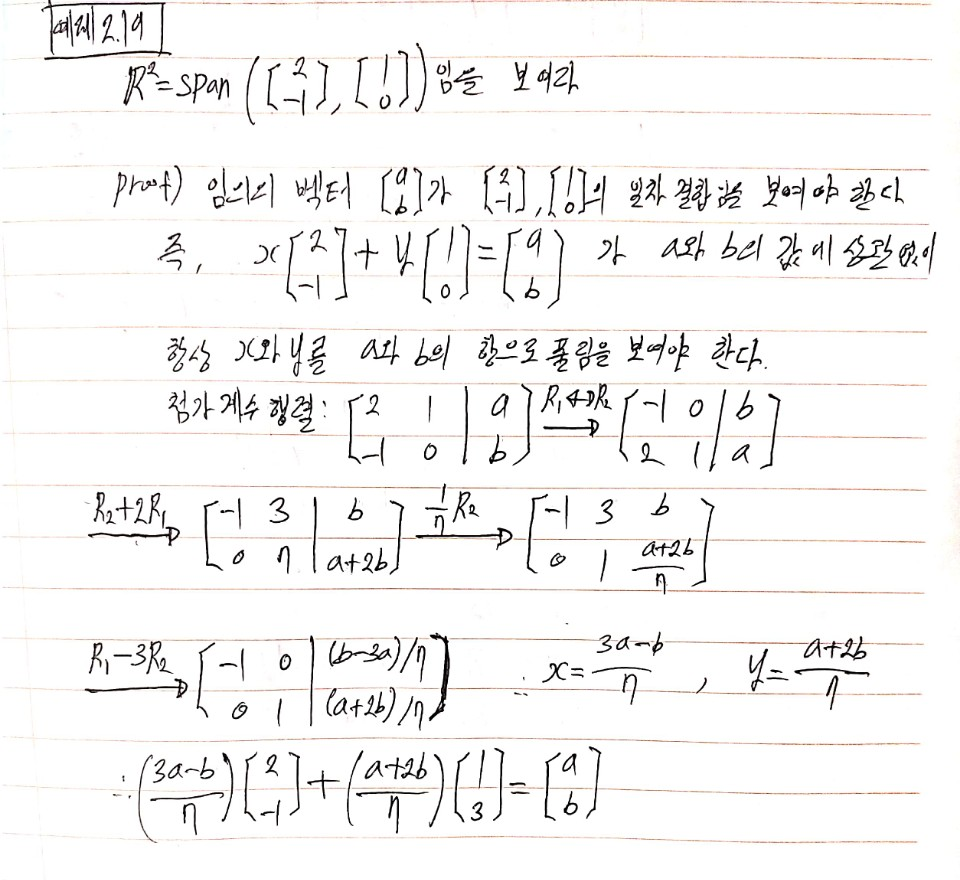 예제 2.19
R²=span([2 -1], [1 0])임을 보여라
proof) 임의의 벡터 [a b]가 [2 -1], [1 0]의 일차 결합임을 보여야 한다
즉, x[2 -1] + y[1 0] = [a b] 가 a와 b의 값에 상관없이
항상 x와 y를 a와 b의 항으로 풀림을 보여야 한다.
첨가 계수 행렬: [2 1 | a; -1 0 | b] R₁↔R₂ → [-1 0 | b; 2 1 | a]
R₂+2R₁ → [-1 3 | b; 0 7 | a+2b] 1/7 R₂ → [-1 3 b; 0 1 (a+2b)/7]
R₁-3R₂ → [-1 0 | (b-3a)/7; 0 1 | (a+2b)/7] ∴ x=(3a-b)/7, y=(a+2b)/7
∴ ((3a-b)/7)[2 -1] + ((a+2b)/7)[1 3] = [a b]